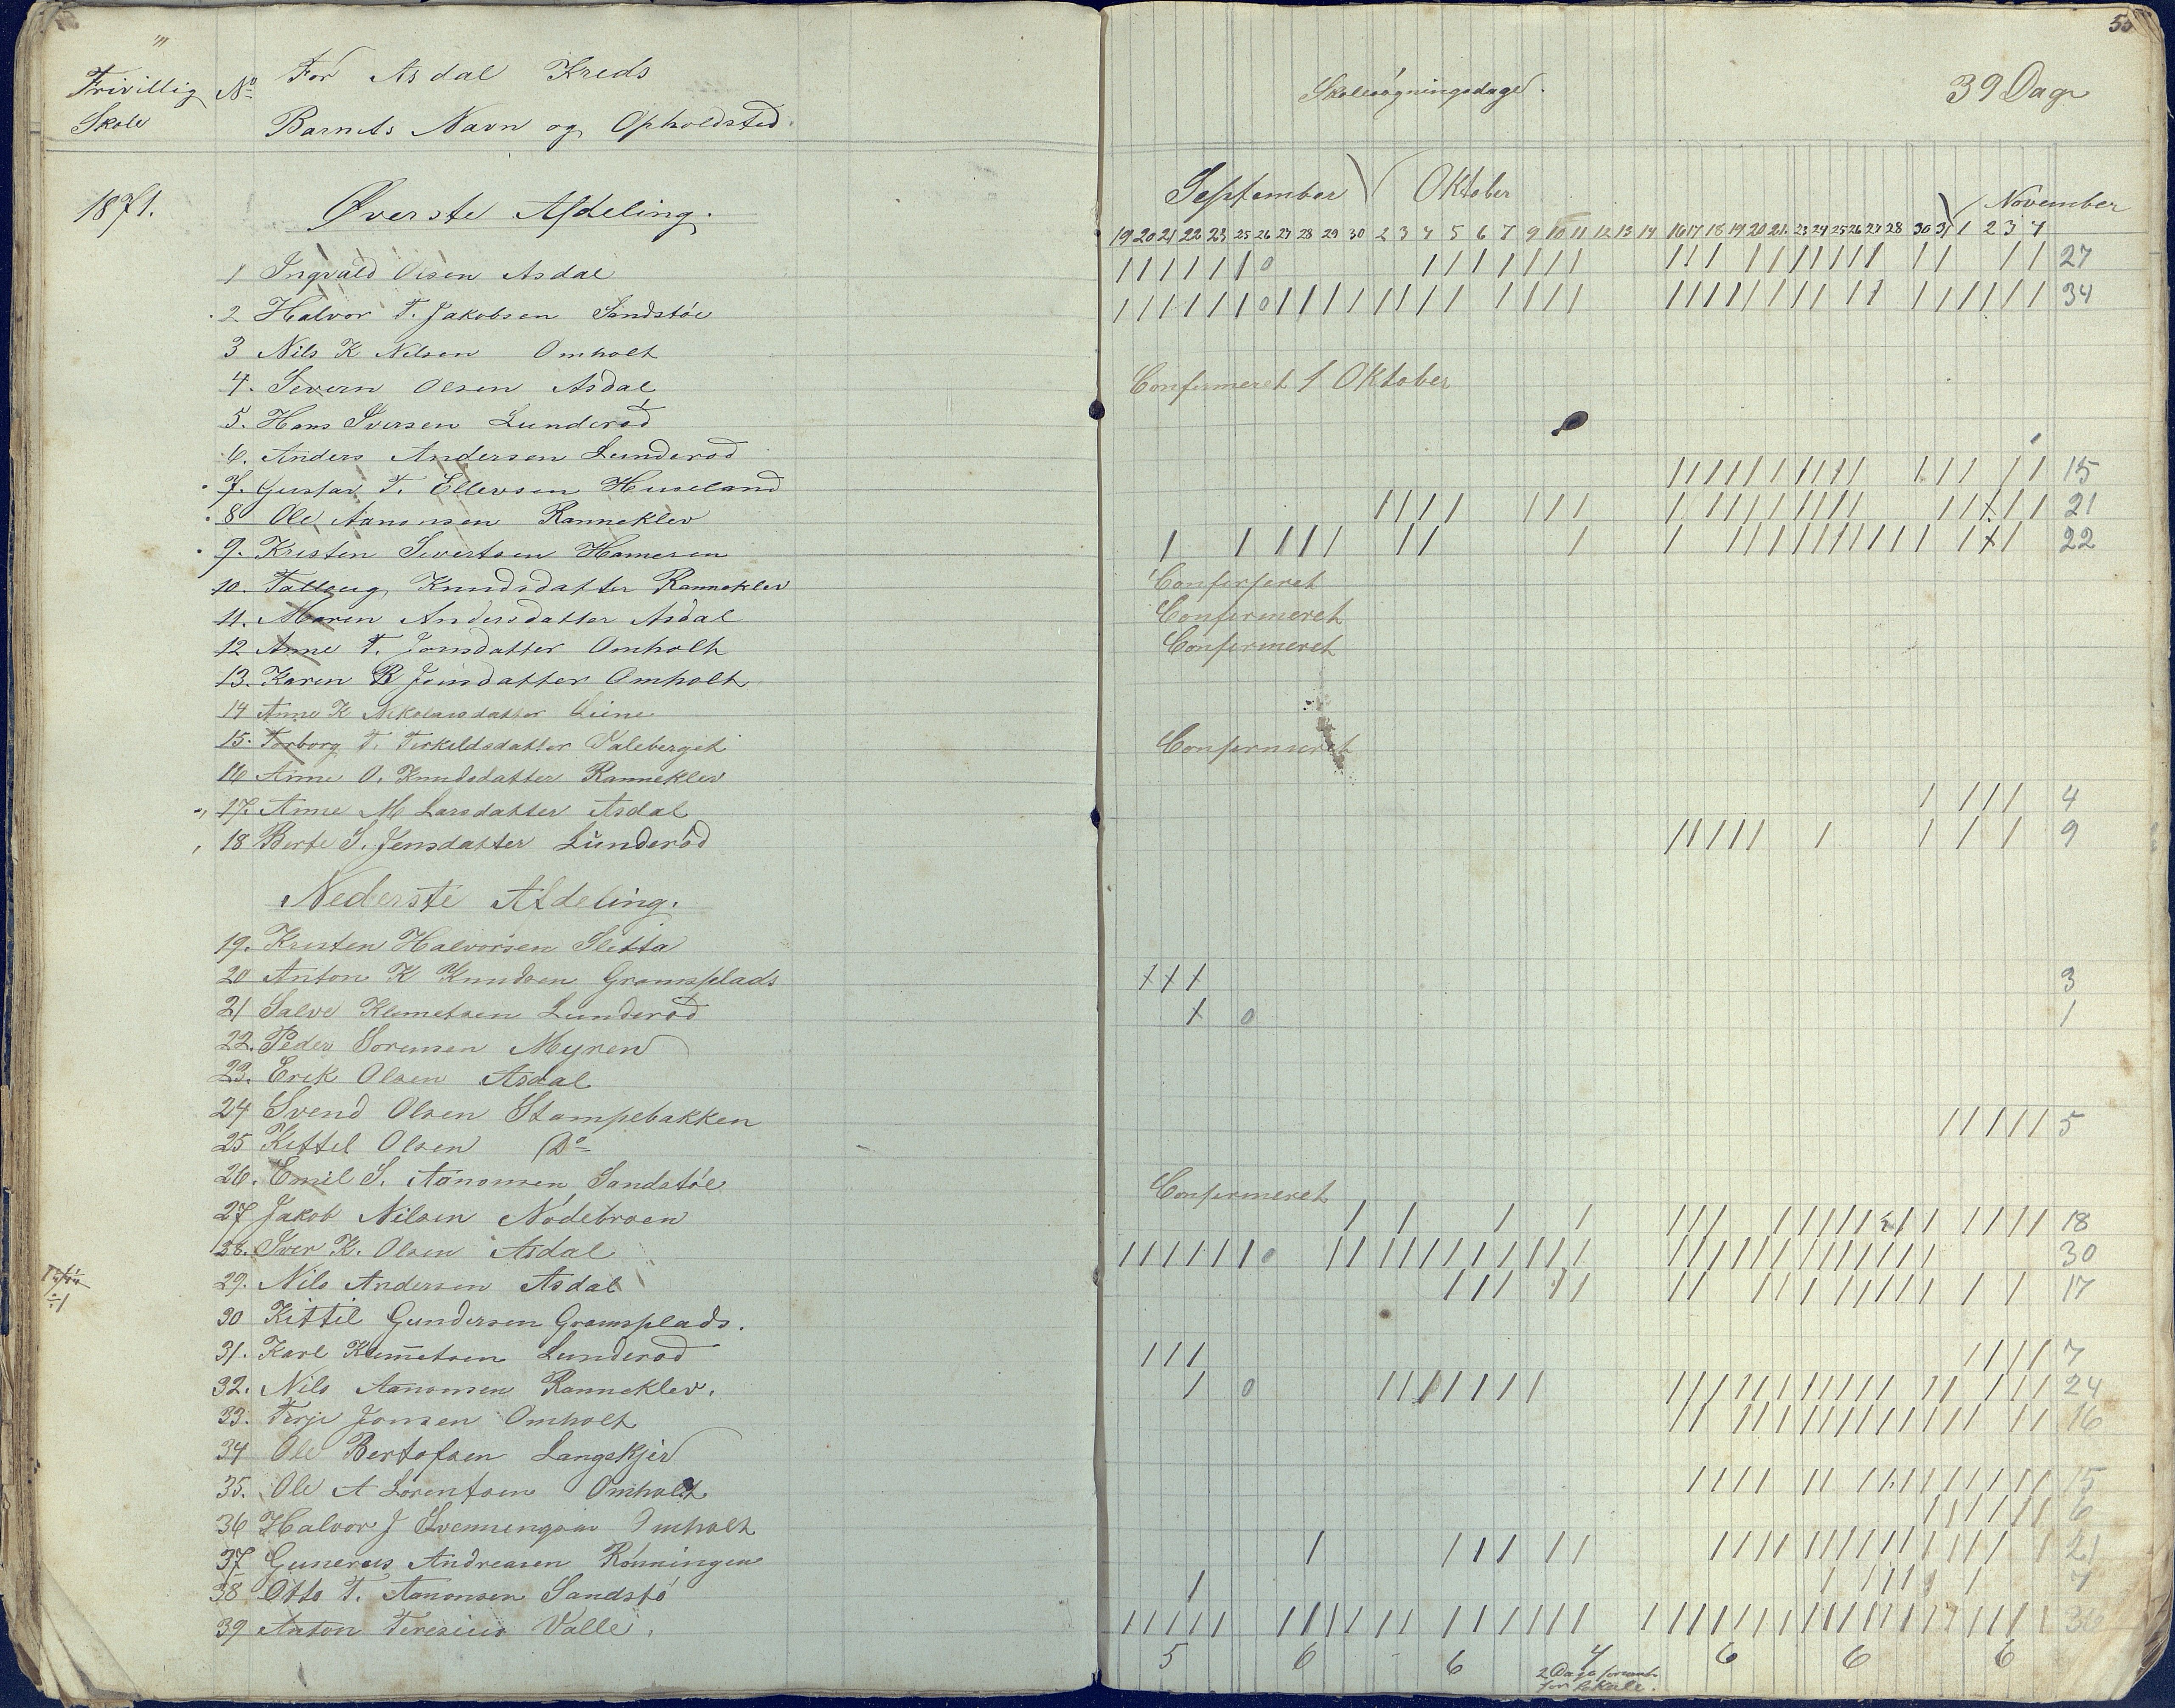 Frivillig Skole
No
For Asdal Kreds
Barnets Navn og Opholdsted.
1871.
Øverste Afdeling.
1 Ingvald Olsen Asdal
2 Halvor T. Jakobsen Sandstøe
3 Nils K Nilsen Omholt
4. Severn Olsen Asdal
5. Hans Iversen Lunderød
6. Anders Andersen Lunderød
7. Gustav T. Ellevsen Huseland
8 Ole Aanonsen Ranneklev
9. Kristen Sivertsen Hamesen
10. Tallaug Knudsdatter Ranneklev
11. Maren Andersdatter Asdal
12 Anne T. Jonsdatter Omholt
13. Karen B Jonsdatter Omholt
14 Anne K Nikolaisdatter Liene
15. Torborg T. Terkeldsdatter Valeberget
16 Anne O. Knudsdatter Ranneklev
17. Anne M Larsdatter Asdal
18 Berte S. Jensdatter Lunderød
Nederste Afdeling.
19. Kristen Halvorsen Sletta
20 Anton K Knudsen Gramsplads
21 Salve Klemetsen Lunderød
22. Peder Sorensen Myren
23. Erik Olsen Asdal
24 Svend Olsen Stampebakken
25 Kittel Olsen Do
26. Emil S. Aanonsen Sandstøe
27 Jakob Nilsen Nodebroen
28. Iver K. Olsen Asdal
29. Nils Andersen Asdal
30 Kittil Gundersen Gramsplads.
31. Karl Klemetsen Lunderød
32. Nils Aanonsen Ranneklev.
33. Terje Jonsen Omholt
34 Ole Bertofsen Langskjer
35. Ole A Lorentsen Omholt
36 Halvor J Svenningsen Omholt
37 Gunerus Andreasen Rønningen
38 Otto T. Aanonsen Sandstø
39 Anton Teresius Valle.
Skolesøgningsdage.
39 Dage
September Oktober November
19 20 21 22 23 25 26 27 28 29 30 2 3 4 5 6 7 9 10 11 12 13 14 16 17 18 19 20 21 23 24 25 26 27 28 30 31 1 2 3 4
27
34
Confirmeret 1 Oktober
15
21
22
Confirmeret
Confirmeret
Confirmeret
Confirmeret
4
9
3
1
5
Confirmeret
18
30
17
7
24
16
15
6
21
7
36
5 6 6 4 6 6 6
2 Dage
for Lokale.